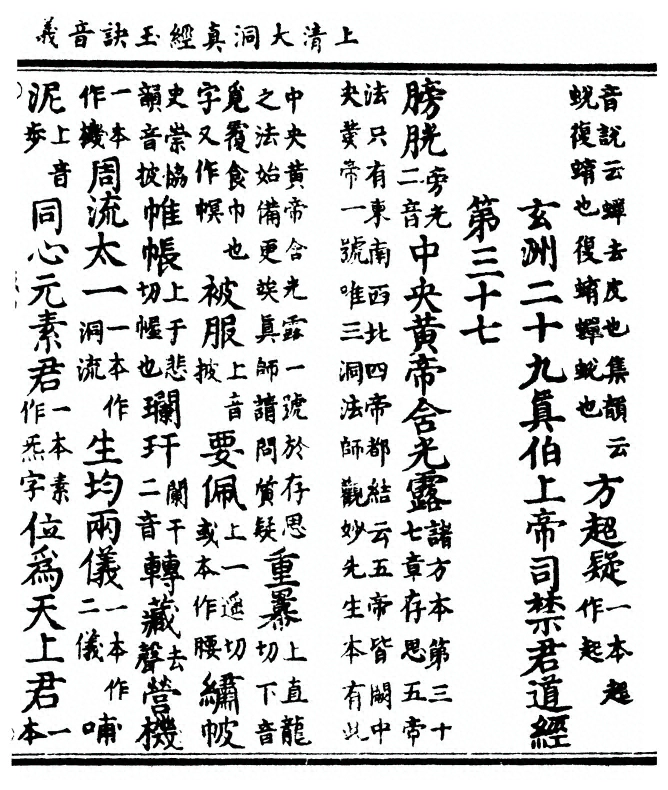 上清大洞真經玉訣音義
音說云蟬去皮也集韻云
蛻復蜟也復蜟蟬蛻也
方超疑
一本超
作起
玄洲二十九真伯上帝司禁君道經
第三十七
膀胱
旁光
二音
中央黃帝含光露
諸方本第三十
七章存思五帝
法只有東南西北四帝都結云五帝皆闕中
央黃帝一號唯三洞法師觀妙先生本有此
中央黃帝含光露一號於存思
之法始備更竢真師請問質疑
重羃
上直龍
切下音
覓覆食巾也
字又作幎
被服
上音
披
要佩
上一遥切
或本作腰
繡帔
史崇協
韻音披
帷帳
上于悲
切幄也
瓓玕
闌干
二音
轉藏
去
聲
營機
一本
作機
周流太一
一本作
洞流
生均兩儀
一本作
二儀
哺
泥
上音
步
同心元素君
一本素
作炁字
位爲天上君
一
本